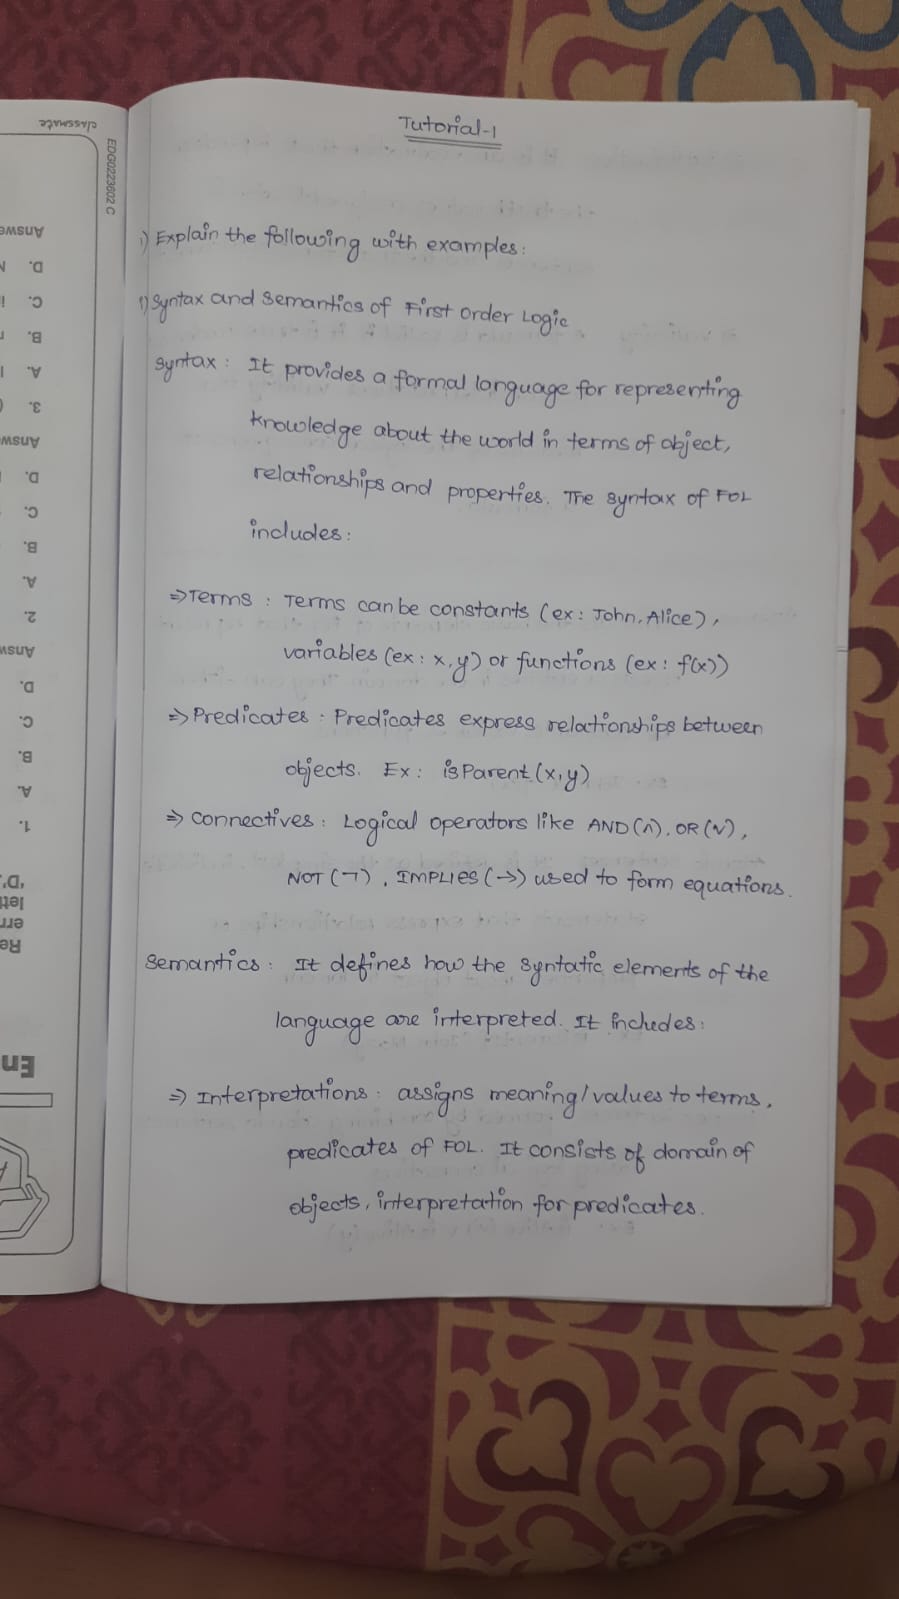 Tutorial-1
1) Explain the following with examples:
1) Syntax and Semantics of First Order Logic
Syntax : It provides a formal language for representing
knowledge about the world in terms of object,
relationships and properties. The syntax of FOL
includes:
⇒ Terms : Terms can be constants (ex: John, Alice),
variables (ex: x, y) or functions (ex: f(x))
⇒ Predicates : Predicates express relationships between
objects. Ex: isParent(x,y)
⇒ Connectives : Logical operators like AND(∧), OR(∨),
NOT(¬), IMPLIES(→) used to form equations.
Semantics : It defines how the syntatic elements of the
language are interpreted. It includes:
⇒ Interpretations : assigns meaning/values to terms,
predicates of FOL. It consists of domain of
objects, interpretation for predicates.
classmate
EDG0223602 C
En
Re
err
lett
'D'.
1.
A.
B.
C.
D.
Answ
2.
A.
B.
C.
D.
Answ
3.
A.
B.
C.
D.
Answe